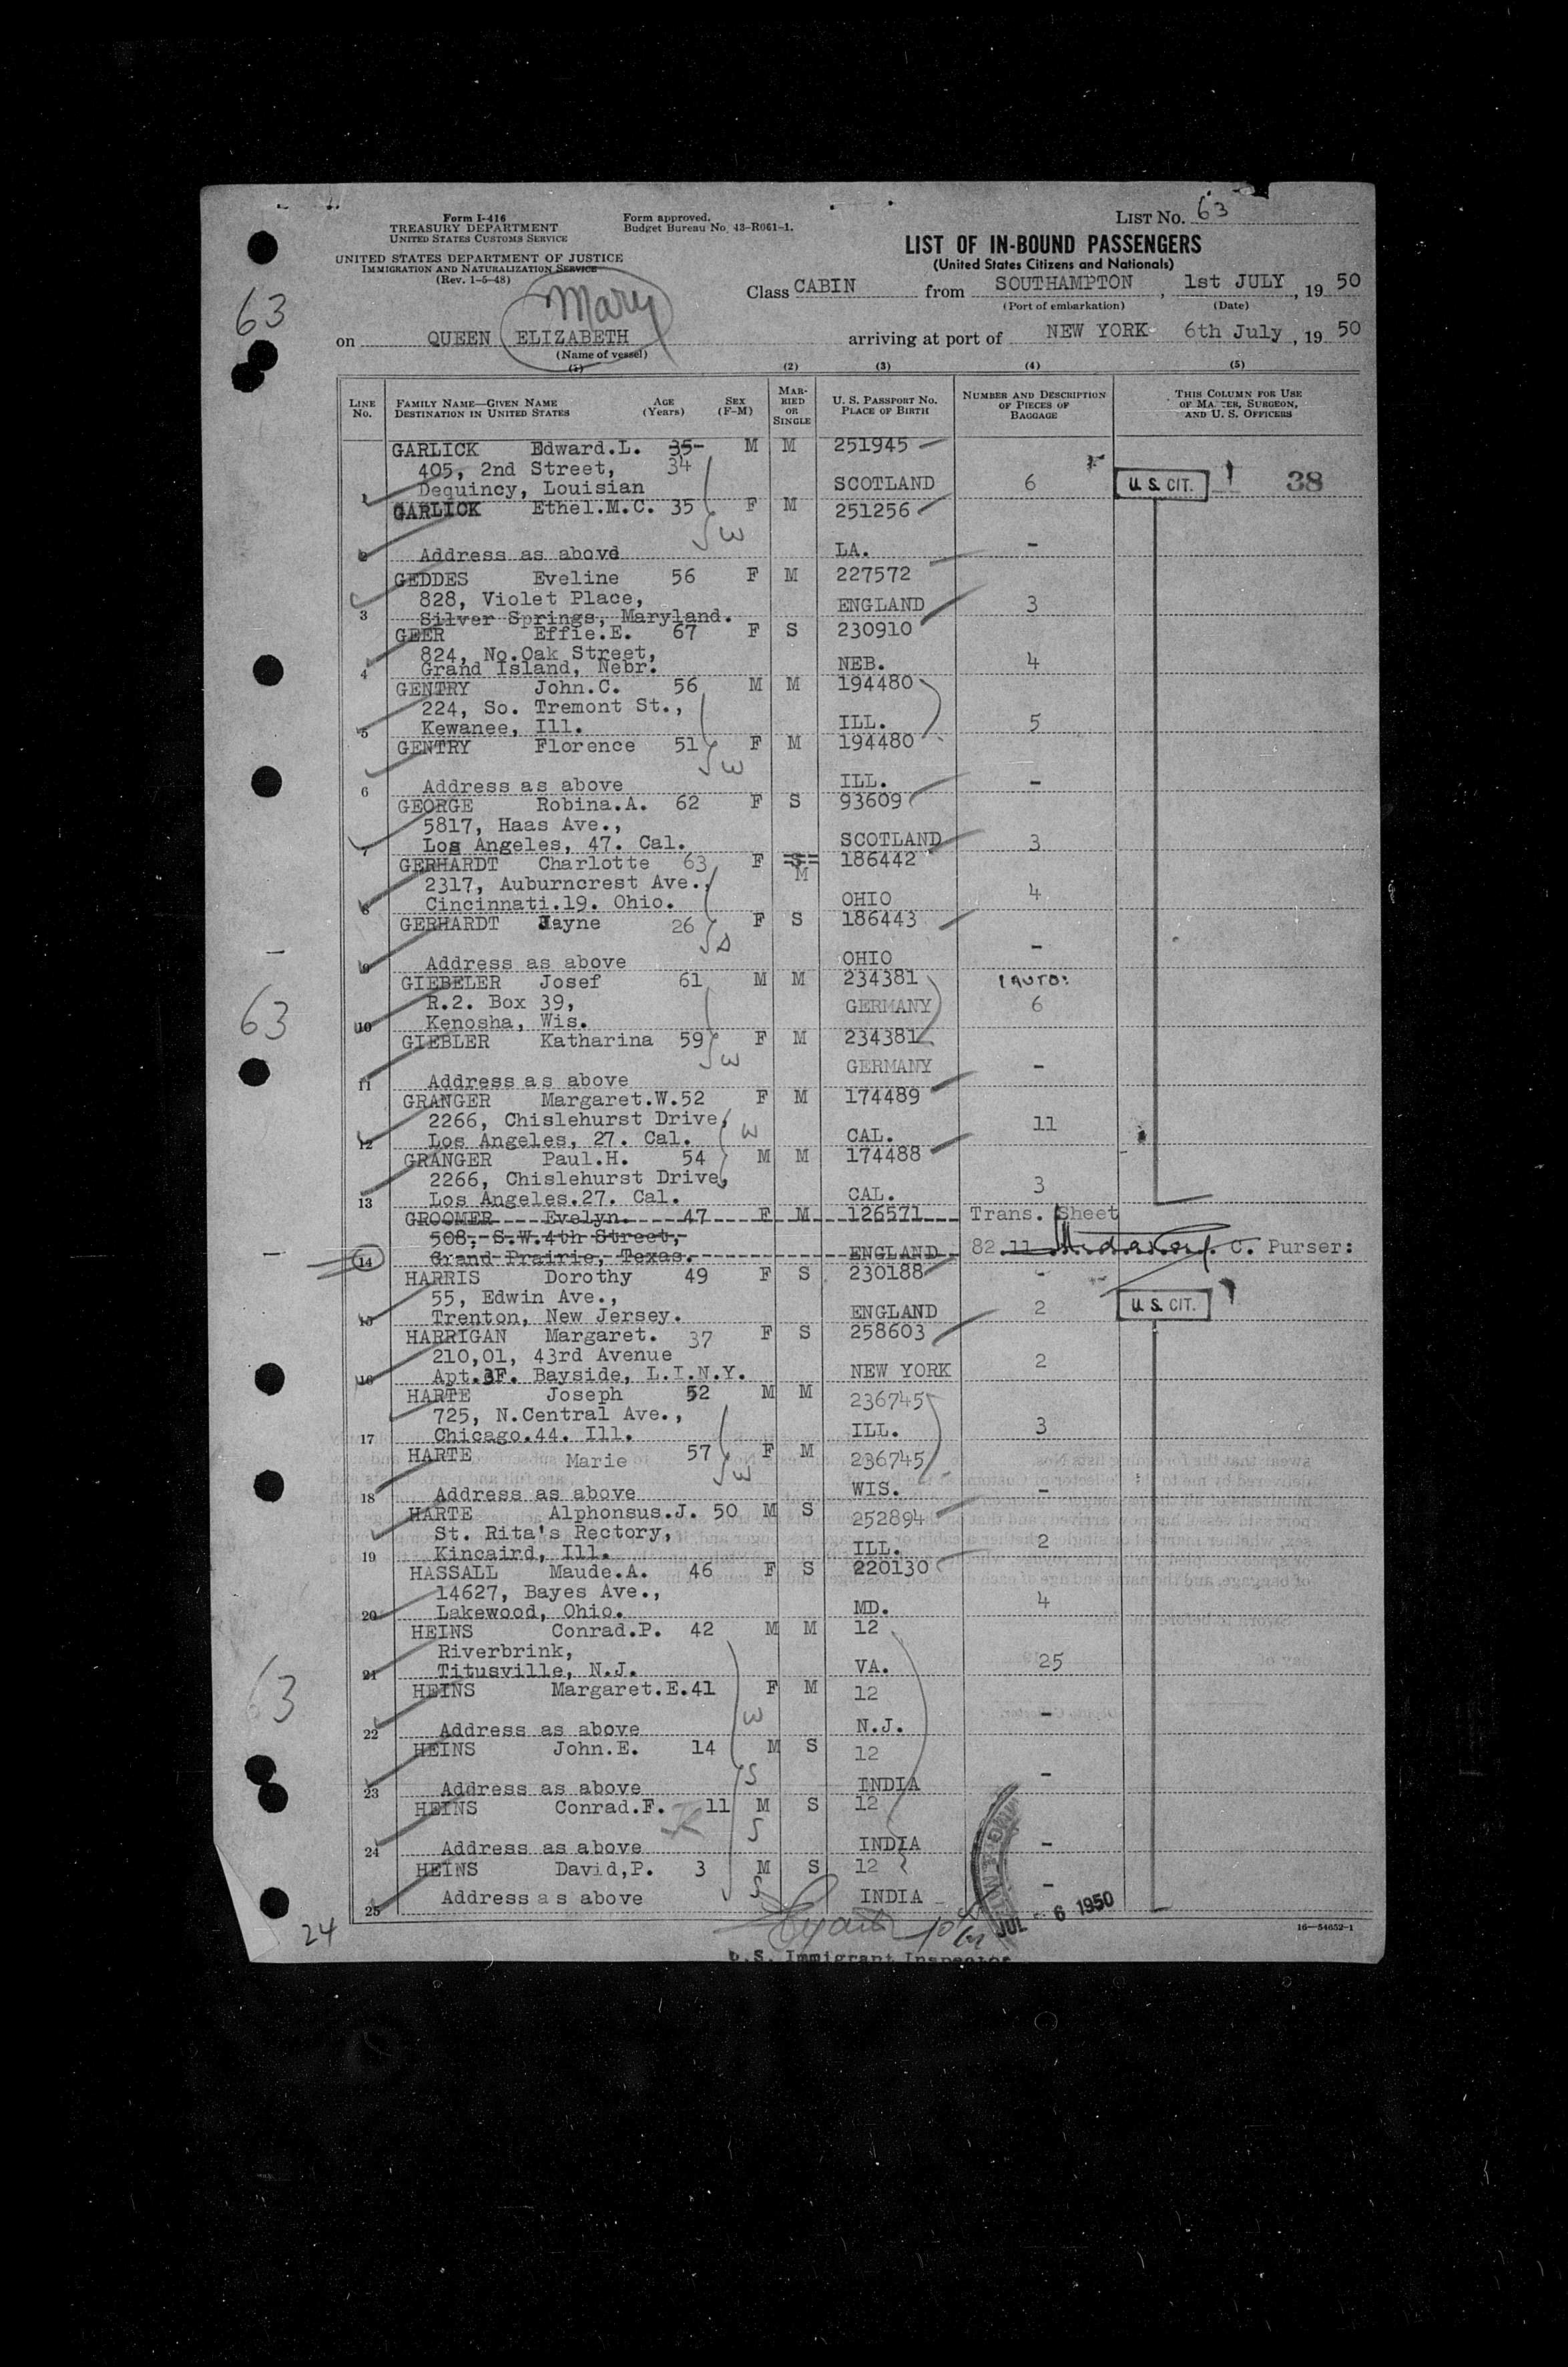 Form I-416
TREASURY DEPARTMENT
UNITED STATES CUSTOMS SERVICE
UNITED STATES DEPARTMENT OF JUSTICE
IMMIGRATION AND NATURALIZATION SERVICE
(Rev. 1-5-48)
Form approved.
Budget Bureau No. 43-R061-1.
LIST No. 63
LIST OF IN-BOUND PASSENGERS
(United States Citizens and Nationals)
Class CABIN from SOUTHAMPTON, 1st JULY, 1950
(Port of embarkation) (Date)
63
Mary
on QUEEN ELIZABETH arriving at port of NEW YORK 6th July, 1950
(Name of vessel)
(1) (2) (3) (4) (5)
LINE No. FAMILY NAME—GIVEN NAME DESTINATION IN UNITED STATES AGE (Years) SEX (F-M) MARRIED OR SINGLE U. S. PASSPORT No. PLACE OF BIRTH NUMBER AND DESCRIPTION OF PIECES OF BAGGAGE THIS COLUMN FOR USE OF MASTER, SURGEON, AND U. S. OFFICERS
GARLICK Edward.L. 35 M M 251945
405, 2nd Street, 34
1 Dequincy, Louisian SCOTLAND 6 U. S. CIT. 38
GARLICK Ethel.M.C. 35 F M 251256
W
2 Address as above LA. -
GEDDES Eveline 56 F M 227572
828, Violet Place, ENGLAND 3
3 Silver Springs, Maryland.
GEER Effie.E. 67 F S 230910
824, No.Oak Street,
4 Grand Island, Nebr. NEB. 4
GENTRY John.C. 56 M M 194480
224, So. Tremont St.,
5 Kewanee, Ill. ILL. 5
GENTRY Florence 51 F M 194480
W
6 Address as above ILL. -
GEORGE Robina.A. 62 F S 93609
5817, Haas Ave.,
7 Los Angeles, 47. Cal. SCOTLAND 3
GERHARDT Charlotte 63 F S M 186442
2317, Auburncrest Ave.,
8 Cincinnati.19. Ohio. OHIO 4
GERHARDT Jayne 26 F S 186443
D
9 Address as above OHIO -
GIEBELER Josef 61 M M 234381 1 AUTO:
R.2. Box 39, GERMANY 6
10 Kenosha, Wis.
GIEBLER Katharina 59 F M 234381
W GERMANY -
11 Address as above
GRANGER Margaret.W.52 F M 174489
2266, Chislehurst Drive, W 11
12 Los Angeles, 27. Cal. CAL.
GRANGER Paul.H. 54 M M 174488
2266, Chislehurst Drive, 3
13 Los Angeles.27. Cal. CAL.
GROOMER Evelyn. 47 F M 126571 Trans. Sheet
508, S.W.4th Street,
14 Grand Prairie, Texas. ENGLAND 82.11 C. Purser:
HARRIS Dorothy 49 F S 230188 -
55, Edwin Ave.,
15 Trenton, New Jersey. ENGLAND 2 U. S. CIT.
HARRIGAN Margaret. 37 F S 258603
210,01, 43rd Avenue
16 Apt.3F. Bayside, L.I.N.Y. NEW YORK 2
HARTE Joseph 52 M M 236745
725, N.Central Ave.,
17 Chicago.44. Ill. ILL. 3
HARTE Marie 57 F M 236745
W
18 Address as above WIS. -
HARTE Alphonsus.J. 50 M S 252894
St. Rita's Rectory,
19 Kincaird, Ill. ILL. 2
HASSALL Maude.A. 46 F S 220130
14627, Bayes Ave.,
20 Lakewood, Ohio. MD. 4
HEINS Conrad.P. 42 M M 12
Riverbrink,
21 Titusville, N.J. VA. 25
HEINS Margaret.E.41 F M 12
W
22 Address as above N.J. -
HEINS John.E. 14 M S 12
S
23 Address as above INDIA -
HEINS Conrad.F. 11 M S 12
S
24 Address as above INDIA -
HEINS David,P. 3 M S 12
S
25 Address as above INDIA -
63
63
24
JUL - 6 1950
16—54652-1
U.S. Immigrant Inspector